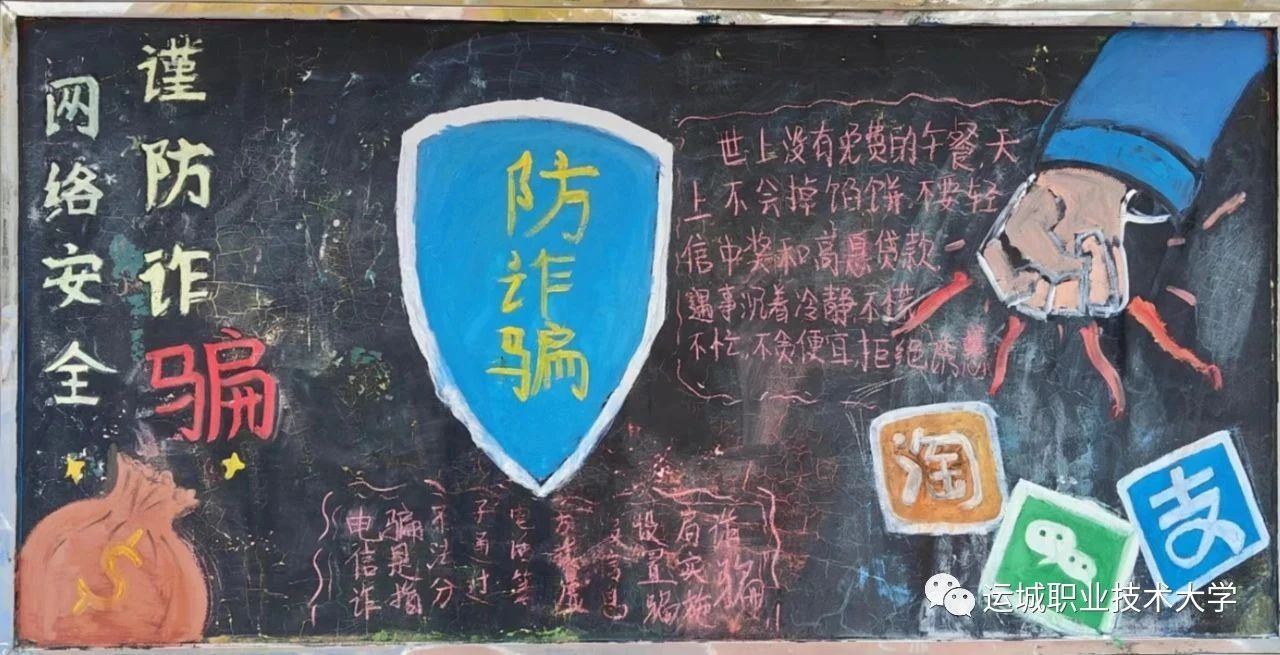 网络安全
谨防诈骗
防诈骗
世上没有免费的午餐,天
上不会掉馅饼不要轻
信中奖和高息贷款
遇事沉着冷静不慌
不忙,不贪便宜,拒绝诱惑
电信诈
骗是指
不法分
子通过
电话等
方式
设置骗
局实施
淘
支
运城职业技术大学